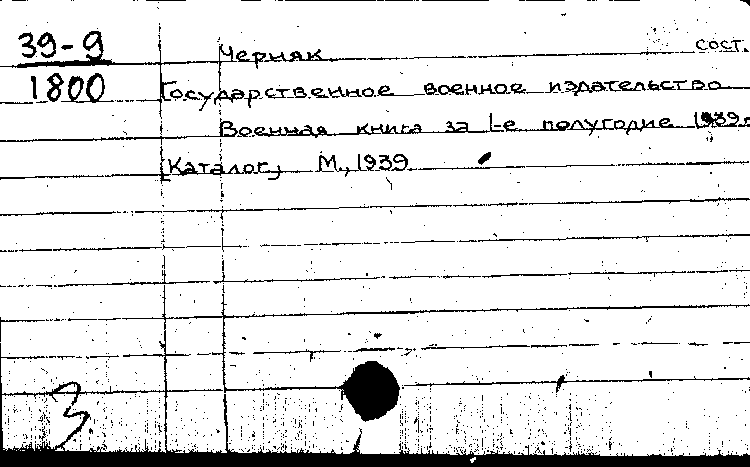 39-9 Черняк сост.
1800 Государственное военное издательство
Военная книга за I-е полугодие 1939г.
[Каталог] М., 1939.
3.